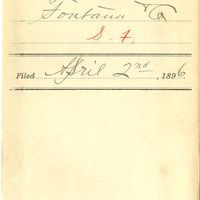 Fontana
S. F.
Filed April 2nd, 1896.